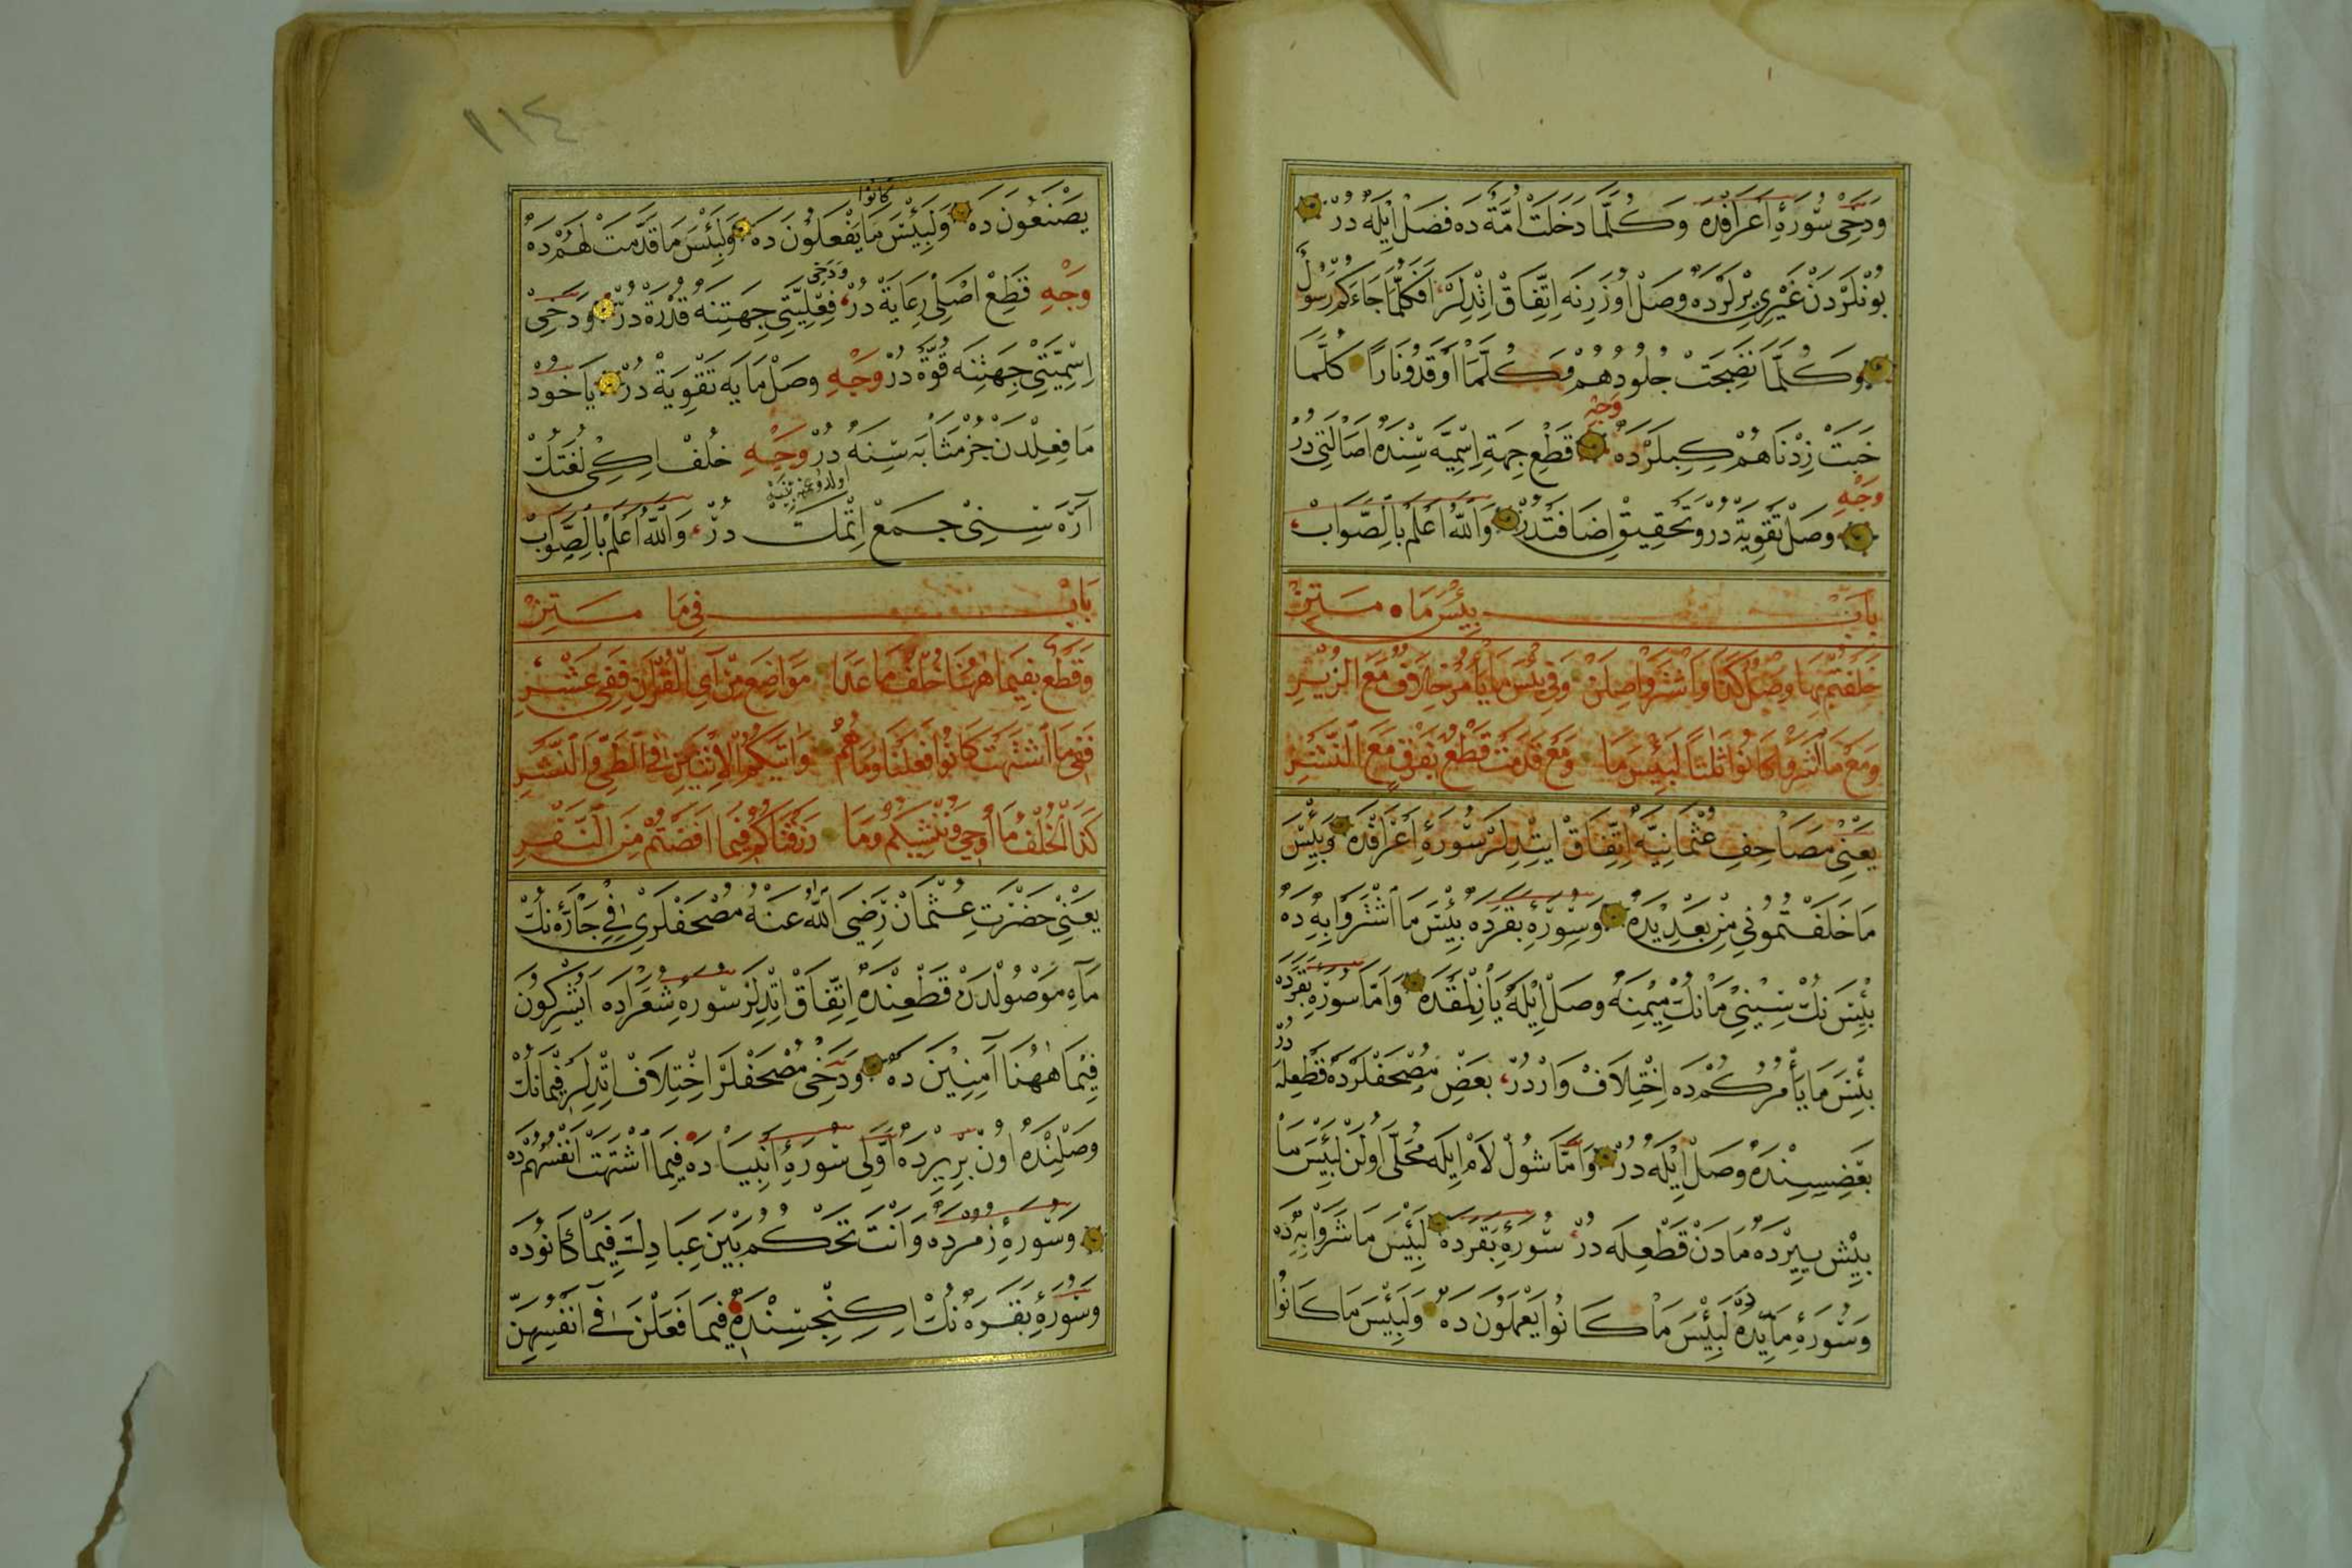 وَدَخِى سُورَۀِ اَعْرَافْدَه وَكُلَّمَا دَخَلَتْ اُمَّةٌ دَه فَصْلْ اِيلَه دُرْ
بُونْلَرْدَنْ غَيْرِى يِرْلَرْدَه وَصْلْ اُوزَرِنَه اِتِّفَاقْ اِتْدِلَرْ اَفَكُلَّمَا جَاءَكُمْ رَسُولٌ
وَكُلَّمَا نَضِجَتْ جُلُودُهُمْ وَكُلَّمَا اَوْقَدُو نَارًا كُلَّمَا
خَبَتْ زِدْنَاهُمْ كِبِيلَرْدَه وَجْهِ قَطْعِ جِهَةِ اِسْمِيَّه سِنْدَه اَصَالَتِى دُرْ
وَجْهِ وَصْلْ تَقْوِيَةْ دُرْ وَتَحْقِيقِ اِضَافَتْدُرْ وَاللّٰهُ اَعْلَمُ بِالصَّوَابْ
بَابْ بِئْسَ مَا مَتِنْ
خَلَفْتُمْ بِهَا وَصْلٌ كَذَا وَاشْتَرَوْا صِلَنْ وَفِى بِئْسَ مَا يَأْمُرْ خِلَافٌ مَعَ الزُّبُرِ
وَمَعْ مَا اشْتَرَوْا كَانُوا ثَلٰثًا لَبِئْسَ مَا وَمَعْ قَدَّمَتْ قَطْعٌ بِفَرْقٍ مَعَ النَّشْرِ
يَعْنِى مَصَاحِفِ عُثْمَانِيَّه اِتِّفَاقْ اِيتْدِلَرْ سُورَۀِ اَعْرَافْدَه وَبِئْسَ
مَا خَلَفْتُمُونِى مِنْ بَعْدِيدَه وَسُورَۀِ بَقَرَدَه بِئْسَ مَا اشْتَرَوْا بِهِ دَه
بِئْسَ نُكْ سِينِنِى مَا نُكْ مِيمِنَه وَصْلْ اِيلَه يَازِلْمَقْدَه وَاَمَّا سُورَۀِ بَقَرَدَه
بِئْسَ مَا يَأْمُرُكُمْ دَه اِخْتِلَافْ وَارْدُرْ بَعْضِ مُصْحَفْلَرْدَه قَطْعِلَه دُرْ
بَعْضِيسِينْدَه وَصْلْ اِيلَه دُرْ وَاَمَّا شُولْ لَامْ اِيلَه مُحَلَّى اُولَنْ لَبِئْسَ مَا
بِيشْ يِيرْدَه مَا دَنْ قَطْعِلَه دُرْ سُورَۀِ بَقَرَدَه لَبِئْسَ مَا شَرَوْا بِهِ دَه
وَسُورَۀِ مَائِدَه دَه لَبِئْسَ مَا كَانُوا يَعْمَلُونَ دَه وَلَبِئْسَ مَا كَانُوا
١١٤
يَصْنَعُونَ دَه وَلَبِئْسَ مَا كَانُوا يَفْعَلُونَ دَه وَلَبِئْسَ مَا قَدَّمَتْ لَهُمْ دَه
وَجْهِ قَطْعْ اَصْلِى رِعَايَةْ دُرْ وَدَخِى فِعْلِيَّتِى جِهَتِنَه قُدْرَةْ دُرْ وَدَخِى
اِسْمِيَّتِى جِهَتِنَه قُوَّةْ دُرْ وَجْهِ وَصْلْ مَايَه تَقْوِيَةْ دُرْ يَاخُودْ
مَا فِعِلْدَنْ جُزْ مَثَابَه سِنَه دُرْ وَجْهِ خُلْفْ اِكِى لُغَتُكْ
آرَه سِنِى جَمَعْ اِتْمَكْ دُرْ وَاللّٰهُ اَعْلَمُ بِالصَّوَابْ
بَابْ فِى مَا مَتِنْ
وَقَطْعٌ بِفِيمَا هٰهُنَا خُلْفُ مَا عَدَا مَوَاضِعَ مِنْ آىِ الْقُرٰانِ فَفِى عَشْرِ
فَفِى مَا اشْتَهَتْ كَانُوا فَعَلْنَا وَمَا هُمُ وَاٰتٰيكُمُ الْاِثْنَيْنِ فِى الطَّىِّ وَالنَّشْرِ
كَذَا الْخُلْفُ مَا اُوحِى وَنُنْشِيكُمْ وَمَا رَزَقْنَاكُمْ فِيمَا اَفَضْتُمْ مِنَ النَّفْرِ
يَعْنِى حَضْرَتِ عُثْمَانْ رَضِىَ اللّٰهُ عَنْهُ مُصْحَفْلَرِى فِى جَارَّه نُكْ
مَاءِ مَوْصُولْدَنْ قَطْعِنْدَه اِتِّفَاقْ اِتْدِلَرْ سُورَۀِ شُعَرَادَه اَتُتْرَكُونَ
فِيمَا هٰهُنَا آمِنِينَ دَه وَدَخِى مُصْحَفْلَرْ اِخْتِلَافْ اِتْدِلَرْ فِيمَا نُكْ
وَصْلِنْدَه اُونْ بِرْ يِرْدَه اَوَّلِى سُورَۀِ اَنْبِيَادَه فِيمَا اشْتَهَتْ اَنْفُسُهُمْ دَه
وَسُورَۀِ زُمَرْدَه وَاَنْتَ تَحْكُمُ بَيْنَ عِبَادِكَ فِيمَا كَانُودَه
وَسُورَۀِ بَقَرَه نُكْ اِكِنْجِسِنْدَه فِيمَا فَعَلْنَ فِى اَنْفُسِهِنَّ